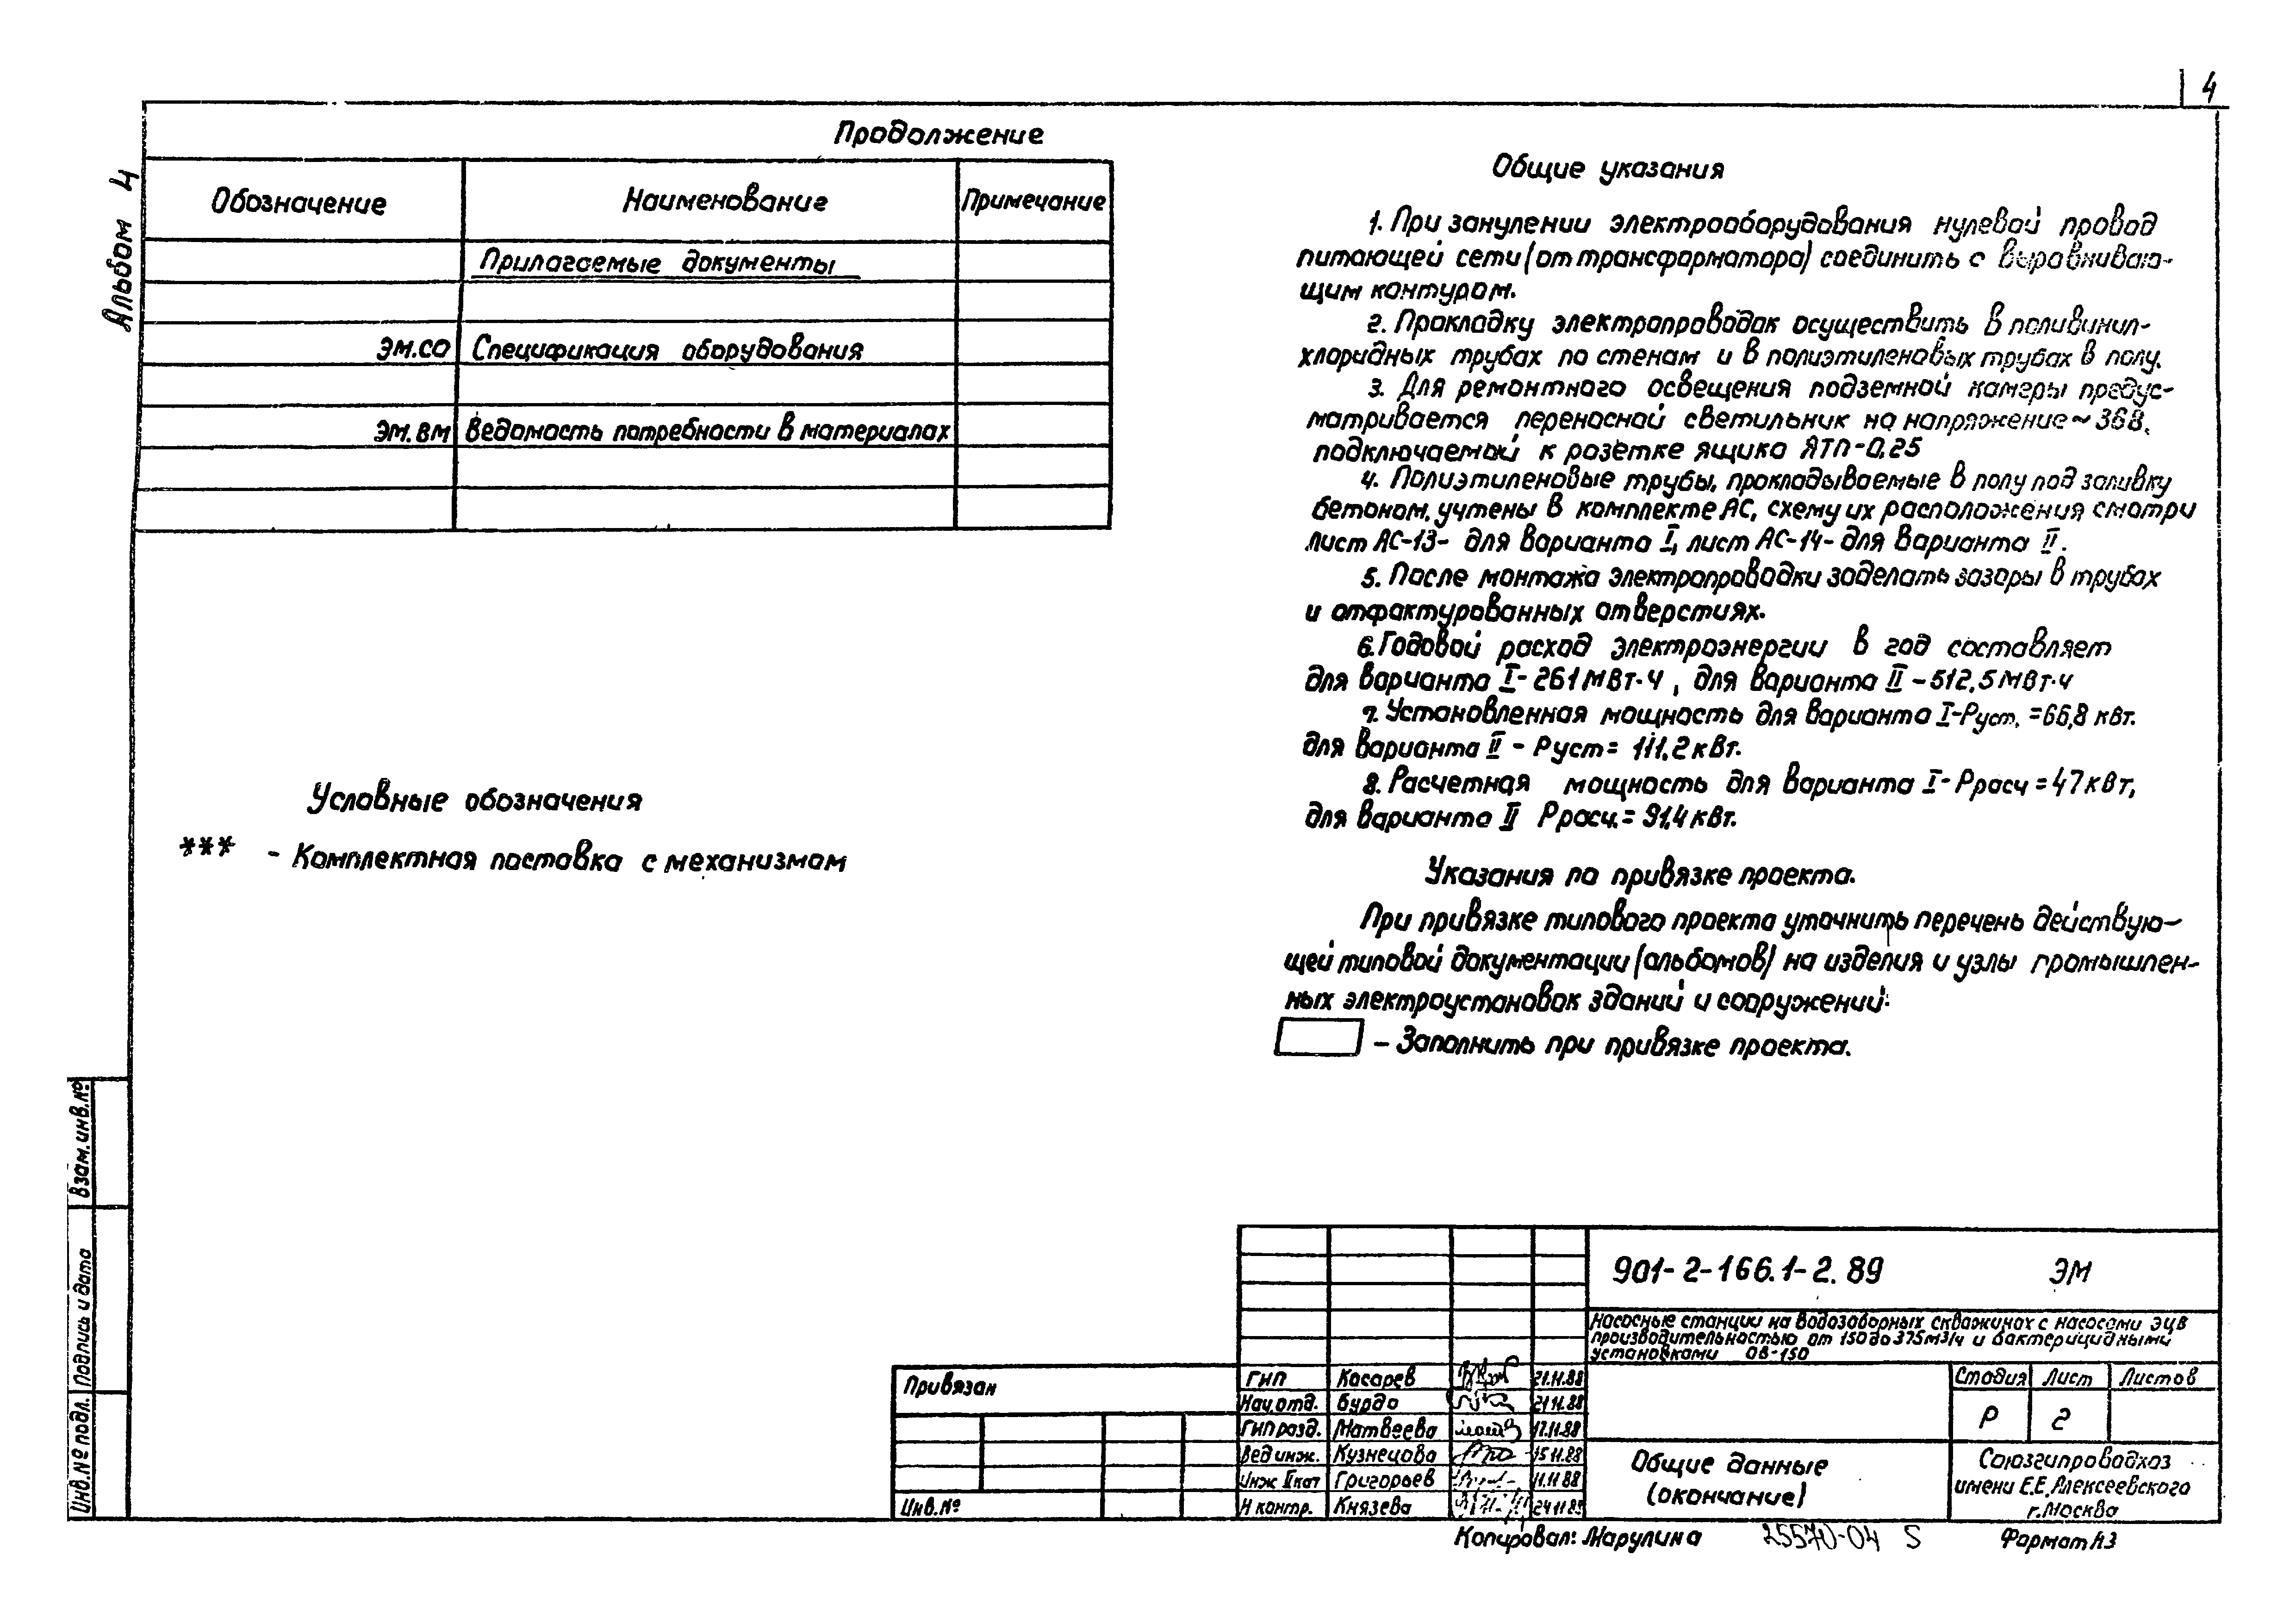 4
Альбом 4
Продолжение
Обозначение Наименование Примечание
Прилагаемые документы
ЭМ.СО Спецификация оборудования
ЭМ.ВМ Ведомость потребности в материалах
Условные обозначения
*** - Комплектная поставка с механизмом
Общие указания
1. При занулении электрооборудования нулевой провод
питающей сети (от трансформатора) соединить с выравниваю-
щим контуром.
2. Прокладку электропроводок осуществить в поливинил-
хлоридных трубах по стенам и в полиэтиленовых трубах в полу.
3. Для ремонтного освещения подземной камеры предус-
матривается переносной светильник на напряжение ~36В,
подключаемой к розетке ящика ЯТП-0,25
4. Полиэтиленовые трубы, прокладываемые в полу под заливку
бетоном, учтены в комплекте АС, схему их расположения смотри
лист АС-13- для варианта I, лист АС-14- для варианта II.
5. После монтажа электропроводки заделать зазоры в трубах
и отфактурованных отверстиях.
6. Годовой расход электроэнергии в год составляет
для варианта I- 261 МВт·ч, для варианта II - 512,5 МВт·ч
7. Установленная мощность для варианта I-Руст. =66,8 кВт.
для варианта II - Руст= 111,2 кВт.
8. Расчетная мощность для варианта I- Ррасч =47 кВт,
для варианта II Ррасч.= 91,4 кВт.
Указания по привязке проекта.
При привязке типового проекта уточнить перечень действую-
щей типовой документации (альбомов) на изделия и узлы промышлен-
ных электроустановок зданий и сооружений.
- Заполнить при привязке проекта.
Взам.инв.№
Подпись и дата
Инв.№ подл.
901-2-166.1-2.89 ЭМ
Насосные станции на водозаборных скважинах с насосами ЭЦВ
производительностью от 150 до 375 м3/ч и бактерицидными
установками ОВ-150
Привязан
Инв.№
ГИП Косарев 21.11.88
Нач.отд. Бурдо 21.11.88
ГИП разд. Матвеева 17.11.88
Вед инж. Кузнецова 15.11.88
Инж II кат Григорьев 11.11.88
Н контр. Князева
Стадия Лист Листов
Р 2
Общие данные
(окончание)
Союзгипроводхоз
имени Е.Е.Алексеевского
г.Москва
Копировал: Марулина 25570-04 5 Формат А3